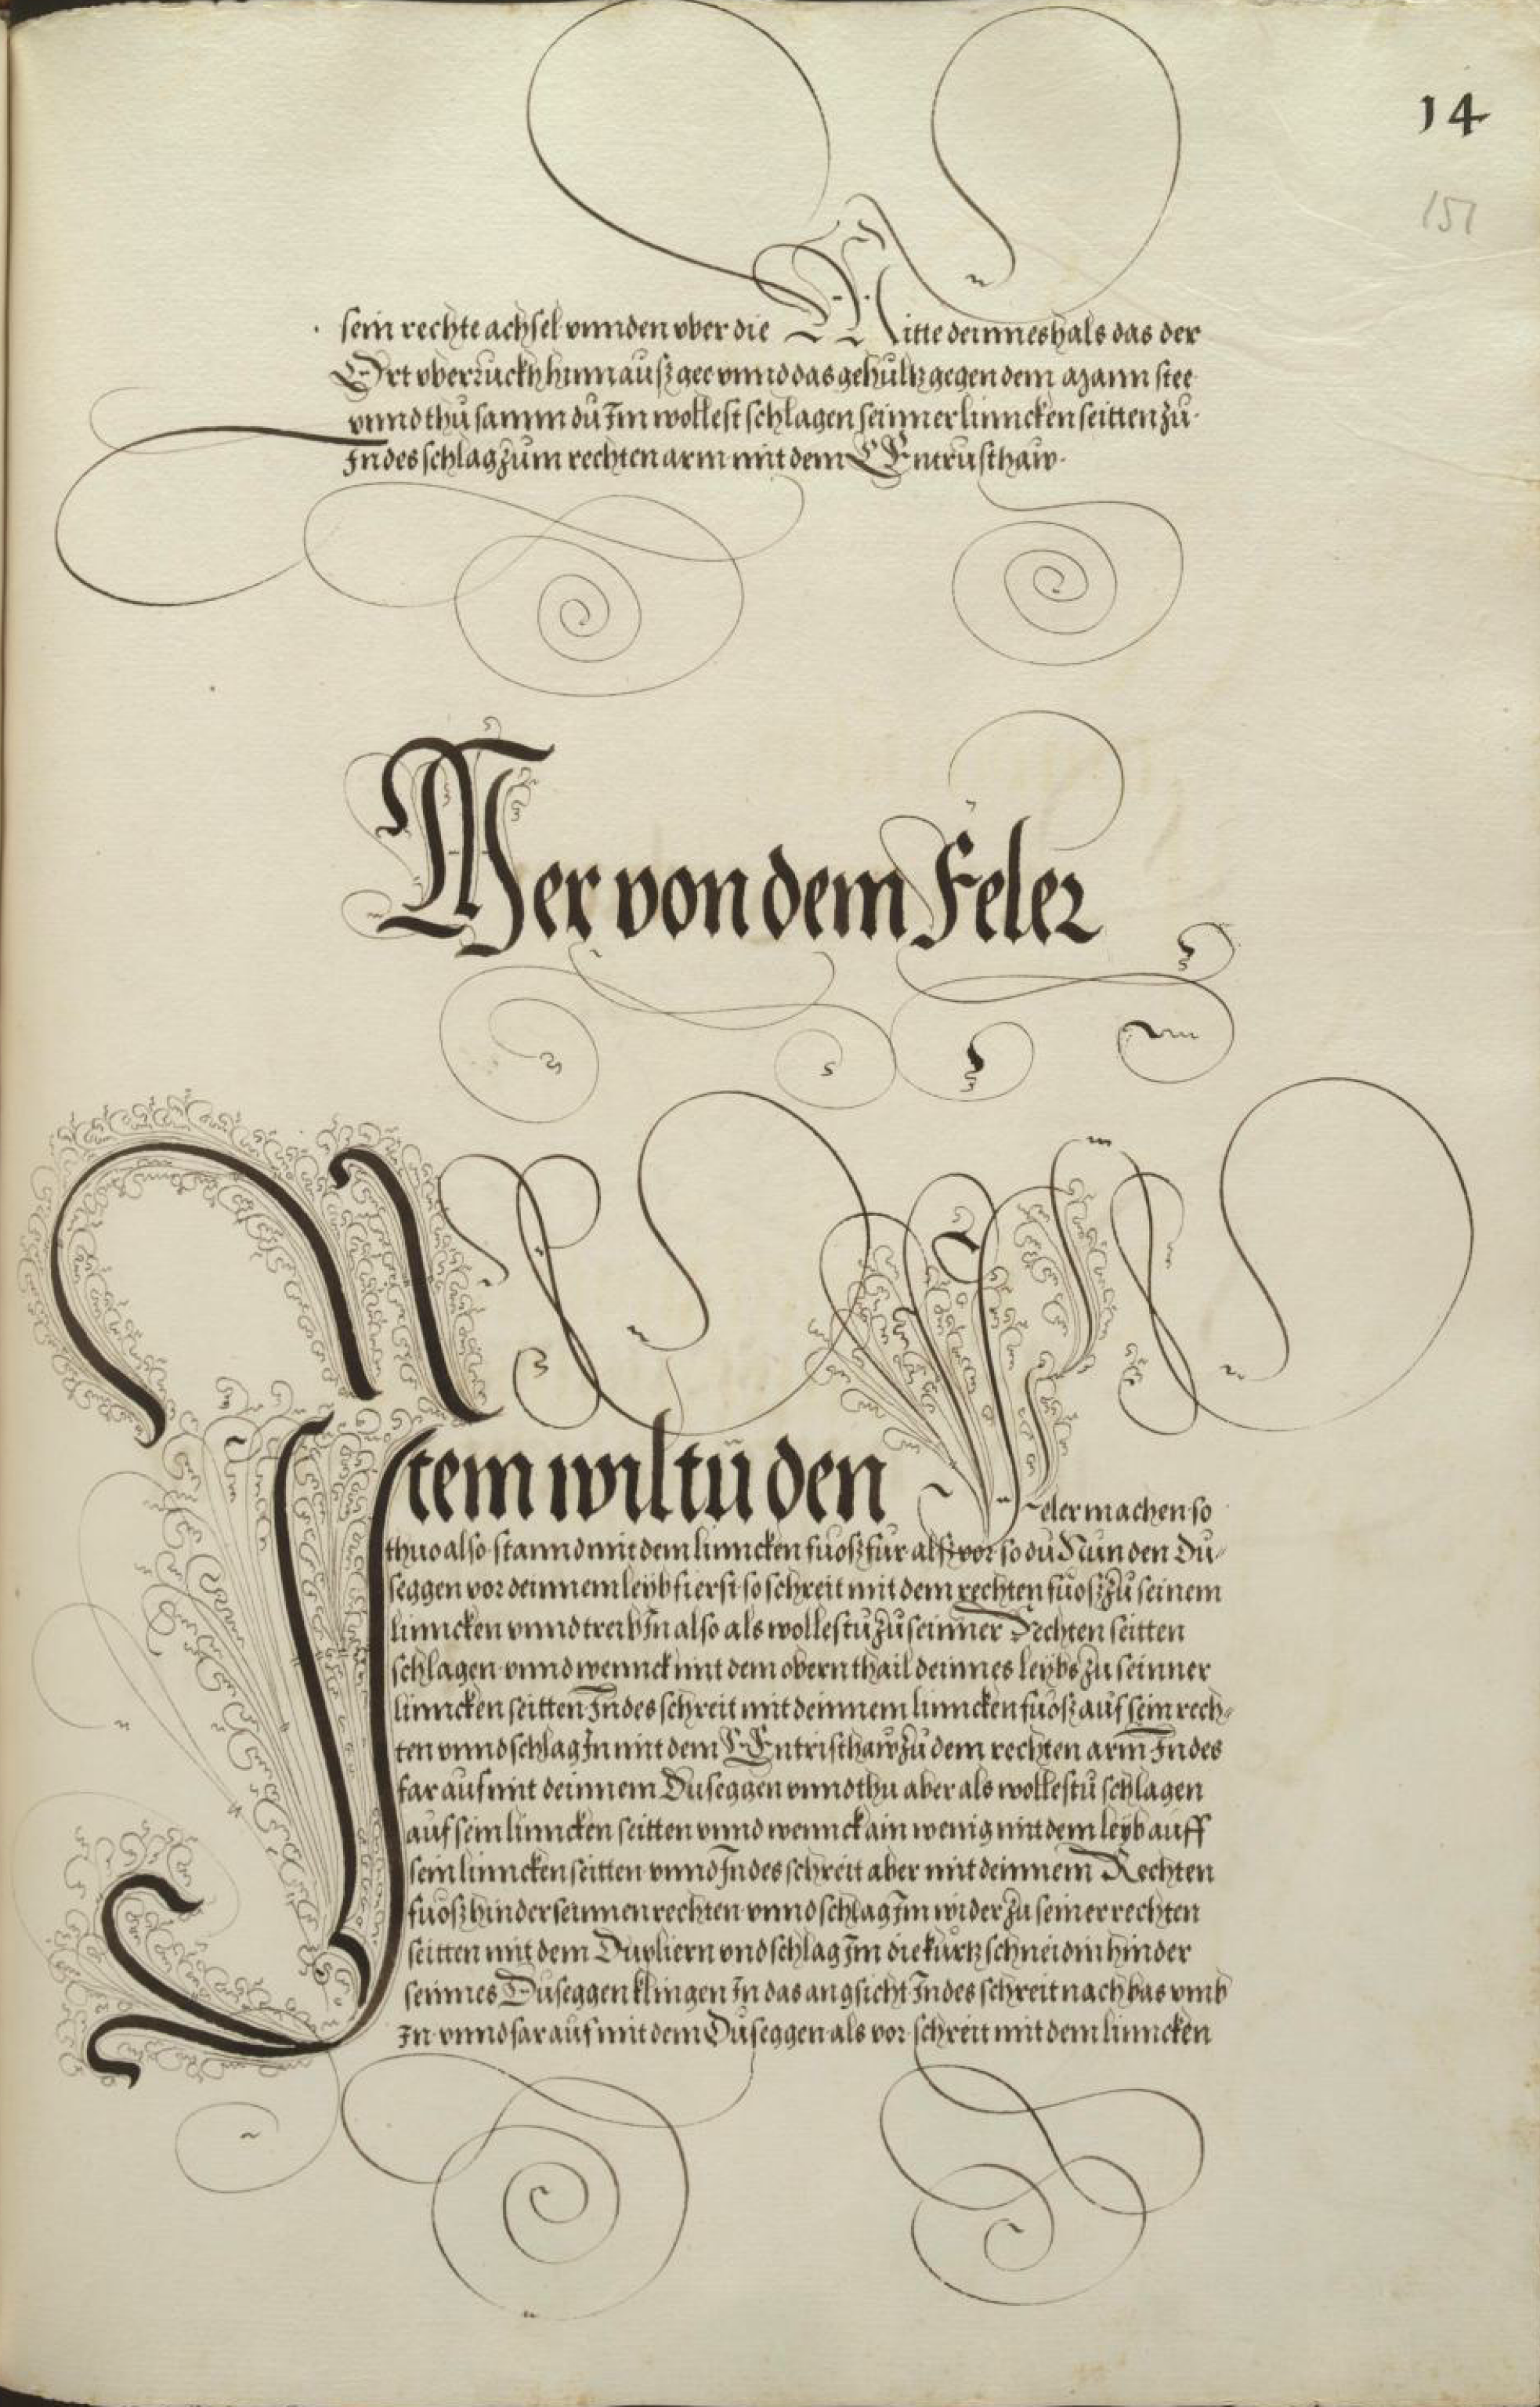 14
151
sein rechte achsel vnnden vber die Mitte deinnes hals das der
Ort vber ruckh hinnauß gee vnnd das gehultz gegen dem Mann stee
vnnd thü samm dü Im wollest schlagen seinner linncken seitten zü
Indes schlag züm rechten arm mit dem Entrüsthaw.
Mer von dem Feler
Item wiltü den Feler machen so
thuo also stannd mit dem linncken fuoß für alß vor so dü Nün den Dü-
seggen vor deinnem leyb fierst so schreit mit dem rechten füoß zü seinem
linncken vnnd treib In also als wollestü zü seinner Rechten seitten
schlagen vnnd wennck mit dem obern thail deinnes leybs zü seinner
linncken seitten Indes schreit mit deinnem linncken fuoß auf sein rech-
ten vnnd schlag In mit dem Entristhaw zü dem rechten arm Indes
far auf mit deinnem Düseggen vnnd thu aber als wollestü schlagen
auf sein linncken seitten vnnd wennck ain wenig mit dem leyb auff
sein linncken seitten vnnd Indes schreit aber mit deinnem Rechten
fuoß hinder seinnen rechten vnnd schlag Im wider zu seiner rechten
seitten mit dem Dupliern vnd schlag Im die kurtz schneid in hinder
seinnes Düseggen klingen In das angsicht Indes schreit nach bas vmb
In vnnd far auf mit dem Düseggen als vor schreit mit dem linncken